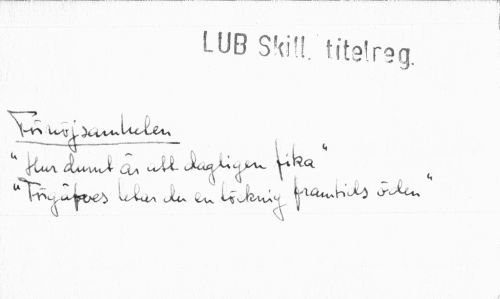 LUB Skill. titelreg.
Förnöjsamheten
"Hur dumt är att dagligen fika"
"Förgäfves letar du en töcknig framtids öden"